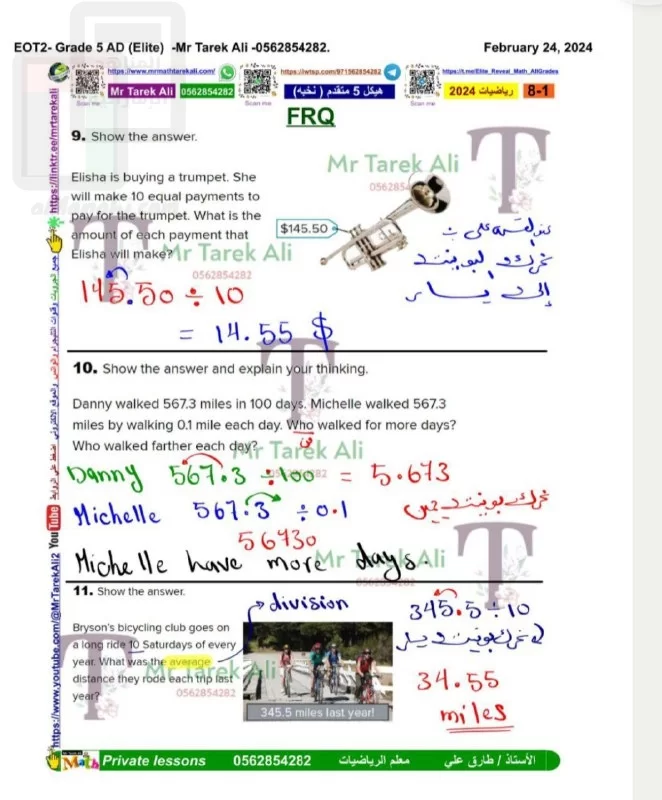 EOT2- Grade 5 AD (Elite) -Mr Tarek Ali -0562854282.
February 24, 2024
https://www.mrmathtarekali.com/
https://iwtsp.com/971562854282
https://t.me/Elite_Reveal_Math_AllGrades
Mr Tarek Ali 0562854282
هيكل 5 متقدم ( نخبه)
رياضيات 2024
8-1
Scan me
Scan me
Scan me
FRQ
9. Show the answer.
Mr Tarek Ali
Elisha is buying a trumpet. She
will make 10 equal payments to
pay for the trumpet. What is the
amount of each payment that
Elisha will make?
$145.50
Mr Tarek Ali
0562854282
145.50 ÷ 10
= 14.55 $
10. Show the answer and explain your thinking.
Danny walked 567.3 miles in 100 days. Michelle walked 567.3
miles by walking 0.1 mile each day. Who walked for more days?
Who walked farther each day?
Mr Tarek Ali
Danny 567.3 ÷100 = 5.673
Michelle 567.3 ÷0.1
56730
Michelle have more days.
Mr Tarek Ali
0562854282
11. Show the answer.
division
345.5÷10
Bryson's bicycling club goes on
a long ride 10 Saturdays of every
year. What was the average
distance they rode each trip last
year?
Mr Tarek Ali
0562854282
345.5 miles last year!
34.55
miles
https://linktr.ee/mrtarekali
https://www.youtube.com/@MrTarekAli2 YouTube
Math Private lessons 0562854282 معلم الرياضيات الأستاذ / طارق علي